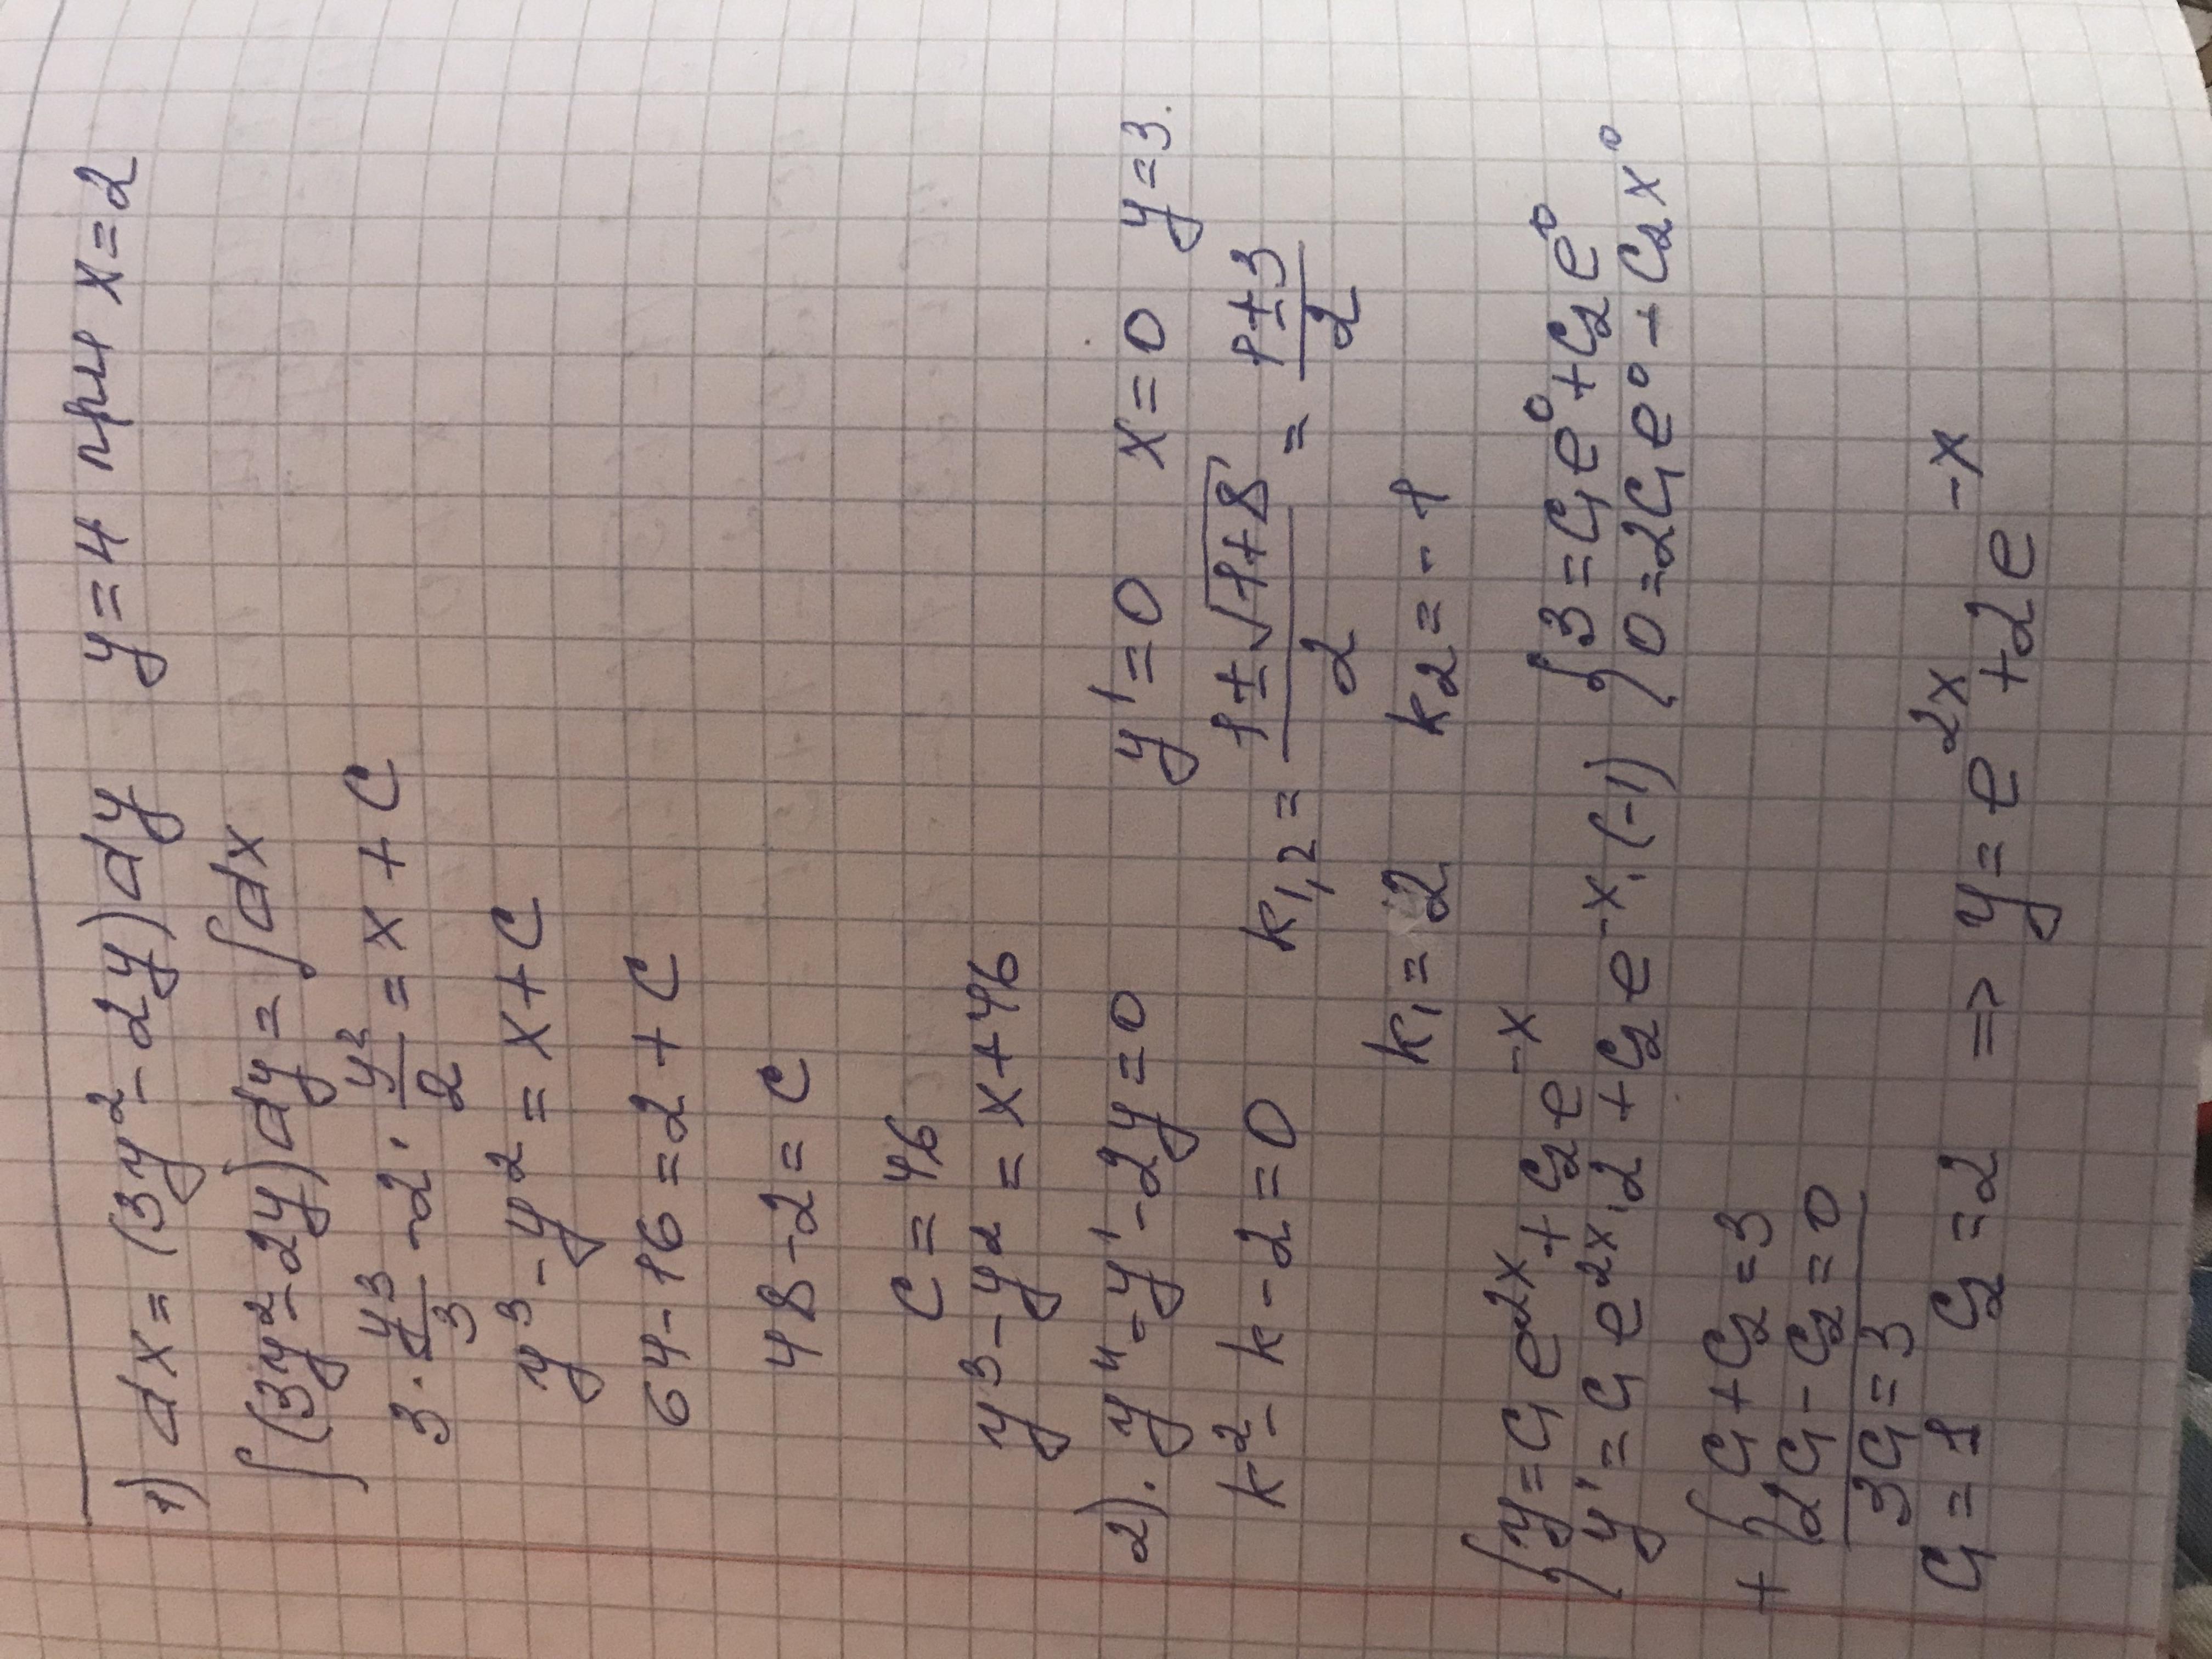 1) dx = (3y² - 2y)dy y = 4 при x = 2
∫(3y² - 2y)dy = ∫dx
3 · y³/3 - 2 · y²/2 = x + C
y³ - y² = x + C
64 - 16 = 2 + C
48 - 2 = C
C = 46
y³ - y² = x + 46
2). y'' - y' - 2y = 0 y' = 0 x = 0 y = 3.
k² - k - 2 = 0 k₁,₂ = (1 ± √(1+8))/2 = (1 ± 3)/2
k₁ = 2 k₂ = -1
{ y = C₁e^(2x) + C₂e^(-x) { 3 = C₁e⁰ + C₂e⁰
y' = C₁e^(2x) · 2 + C₂e^(-x) · (-1) 0 = 2C₁e⁰ - C₂x⁰
+ { C₁ + C₂ = 3
2C₁ - C₂ = 0
3C₁ = 3
C₁ = 1 C₂ = 2 => y = e^(2x) + 2e^(-x)